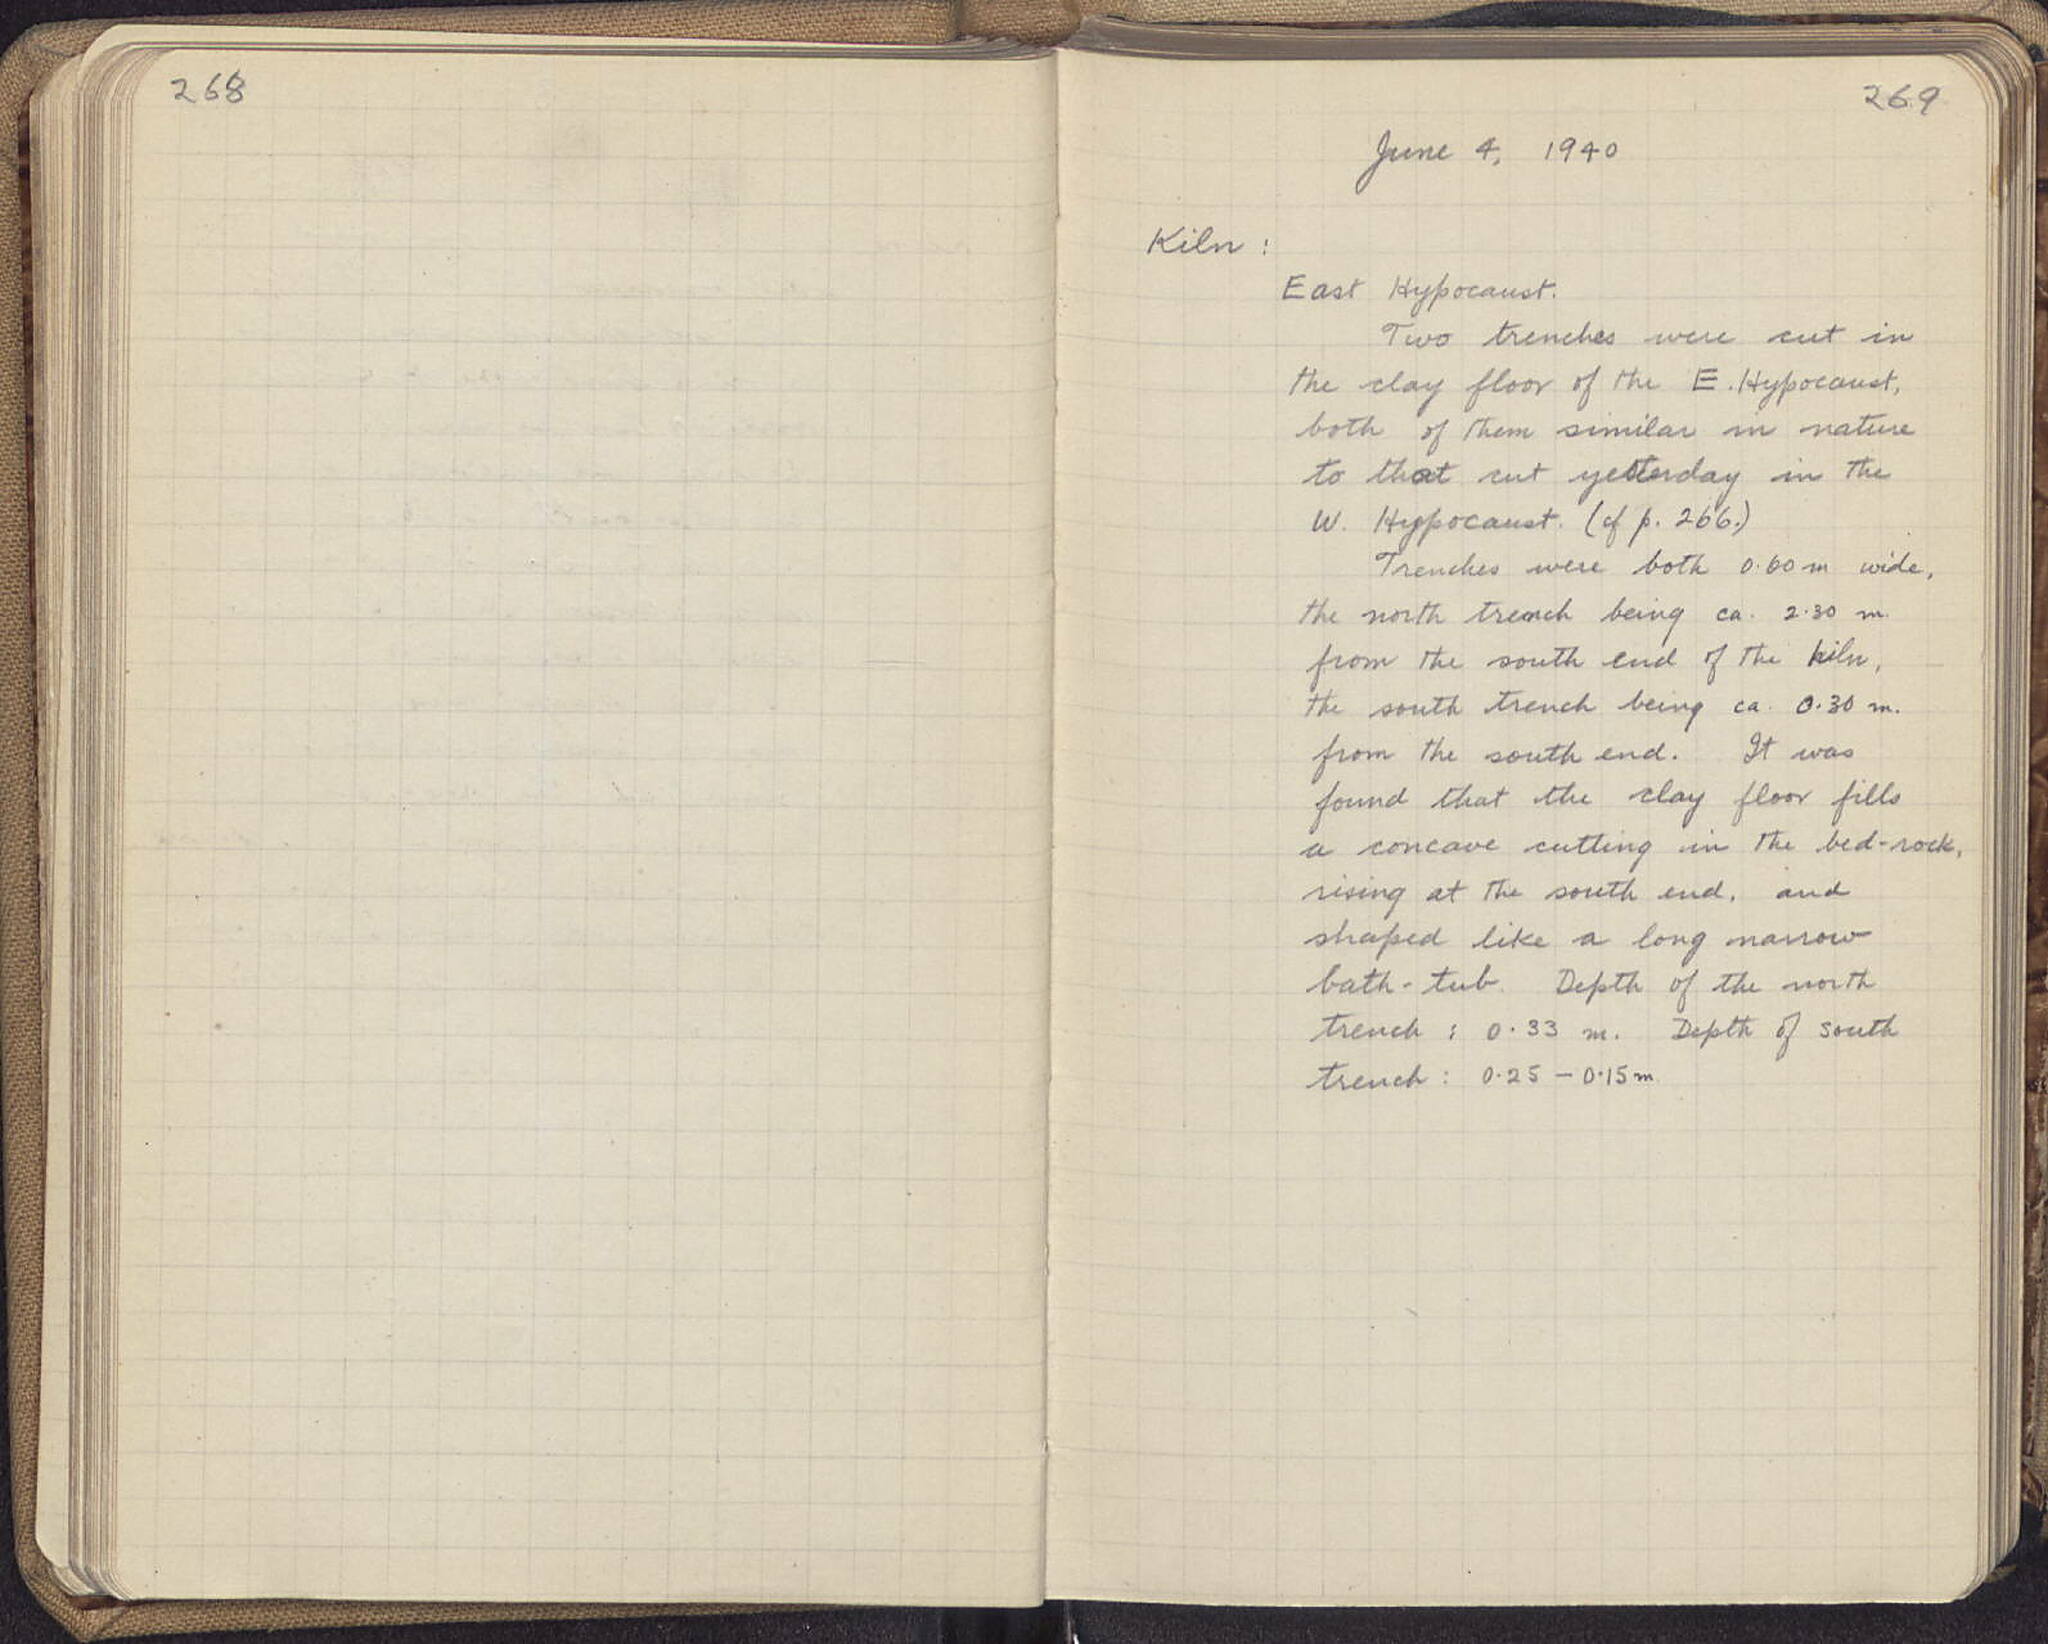 268
269
June 4, 1940
Kiln :
East Hypocaust.
Two trenches were cut in
the clay floor of the E. Hypocaust,
both of them similar in nature
to that cut yesterday in the
W. Hypocaust. (cf p. 266.)
Trenches were both 0.60 m wide,
the north trench being ca. 2.30 m.
from the south end of the kiln,
the south trench being ca. 0.30 m.
from the south end. It was
found that the clay floor fills
a concave cutting in the bed-rock,
rising at the south end, and
shaped like a long narrow
bath-tub. Depth of the north
trench : 0.33 m. Depth of south
trench : 0.25 – 0.15 m